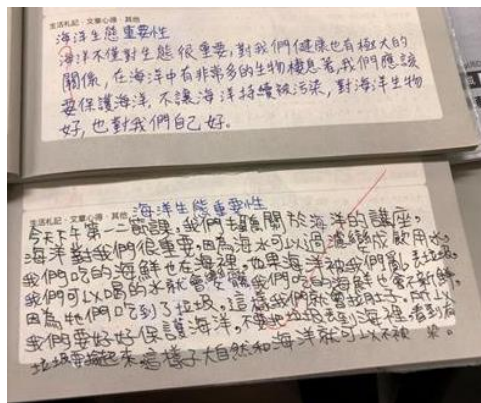 生活札記·文章心得·其他
海洋生態重要性
海洋不僅對生態很重要,對我們健康也有極大的
關係,在海洋中有非常多的生物棲息著,我們應該
要保護海洋,不讓海洋持續被污染,對海洋生物
好,也對我們自己好。
生活札記·文章心得·其他
海洋生態重要性
今天下午第一二節課,我們去聽關於海洋的講座,
海洋對我們很重要,因為海水可以過濾變成飲用水,
我們吃的海鮮也在海裡,如果海洋被我們亂丟垃圾,
我們可以喝的水就會變髒我們吃的海鮮也會不新鮮,
因為牠們吃到了垃圾,這樣我們就會拉肚子。所以
我們要好好保護海洋,不要把垃圾丟到海裡,看到有
垃圾要撿起來這樣子大自然和海洋就可以不被 染。